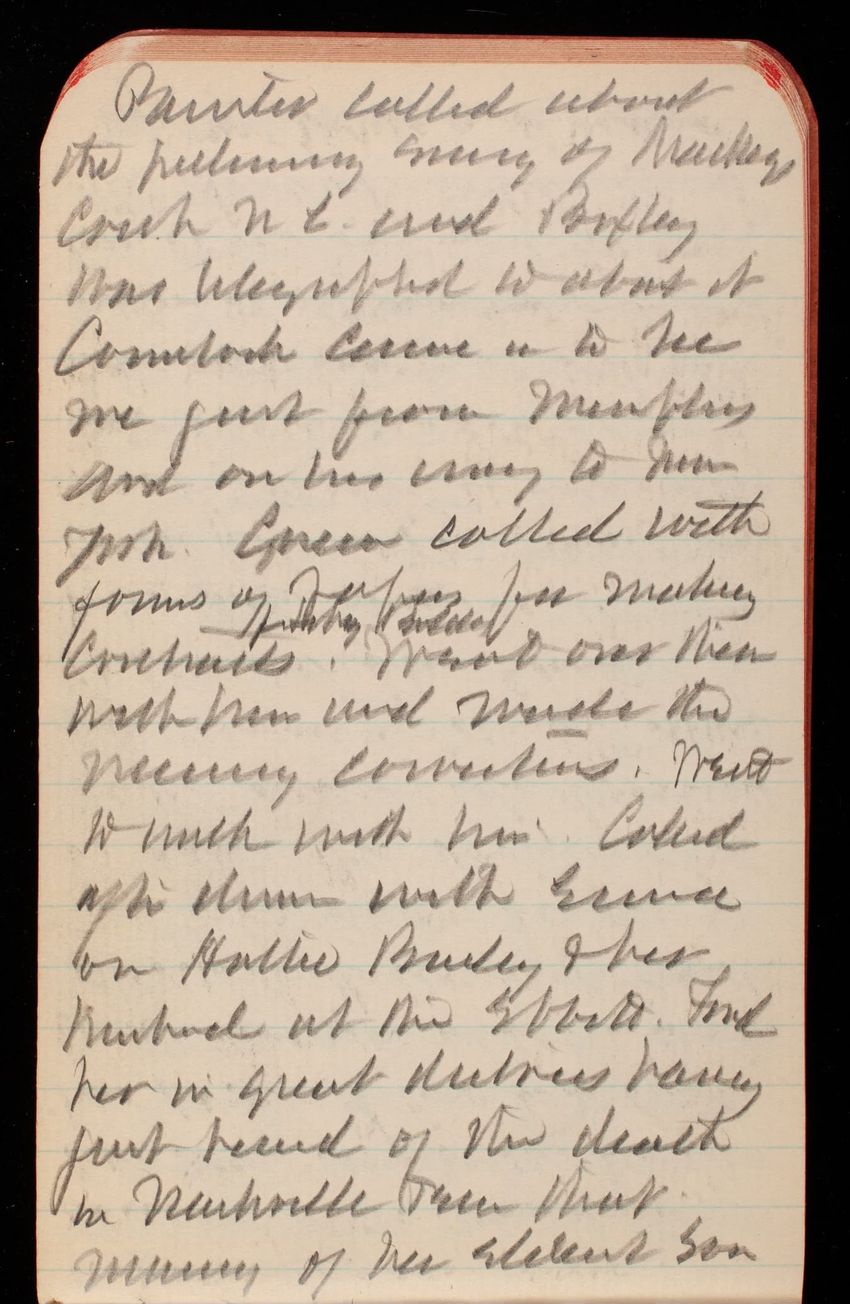 Painter called about
the preliminary survey of Mackeys
Creek N C. and Bixley
was telegraphed to about it
Comstock came in to see
me just from Memphis
and on his way to New
York. Green called with
forms of Papers for making
Contracts. Went over them
with him and made the
necessary corrections. Went
to walk with him. Called
after dinner with Emma
on Hallie Bailey & her
husband at the Ebbitt. Found
her in great distress having
just heard of the death
in Nashville Tenn that
morning of her eldest Son